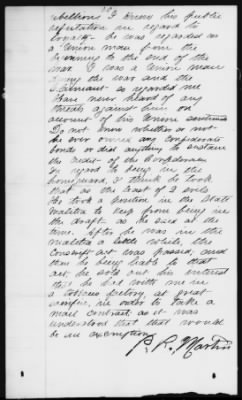 rebellion I knew his public
reputation in regard to
loyalty. He was regarded as
a Union man from the
beginning to the end of the
war. I was a Union man
during the war and the
Claimant so regarded me
I have never heard of any
threats against him on
account of his Union sentiments
Do not know whether or not
he ever owned any Confederate
bonds or did anything to sustain
the credit of the Confederacy
In regard to being in the
homeguard, I think he took
that as the least of 2 evils
He took a position in the State
Militia to keep from being in
the draft. as he said at the
time. After he was in the
malitia a little while, the
Conscript act was passed, and
then he being liable to that
act, he sold out his interest
that he had with me in
a tobacco factory, at great
sacrifice, in order to take a
mail contract as it was
understood that that would
be an exemption.
P. R. Martin